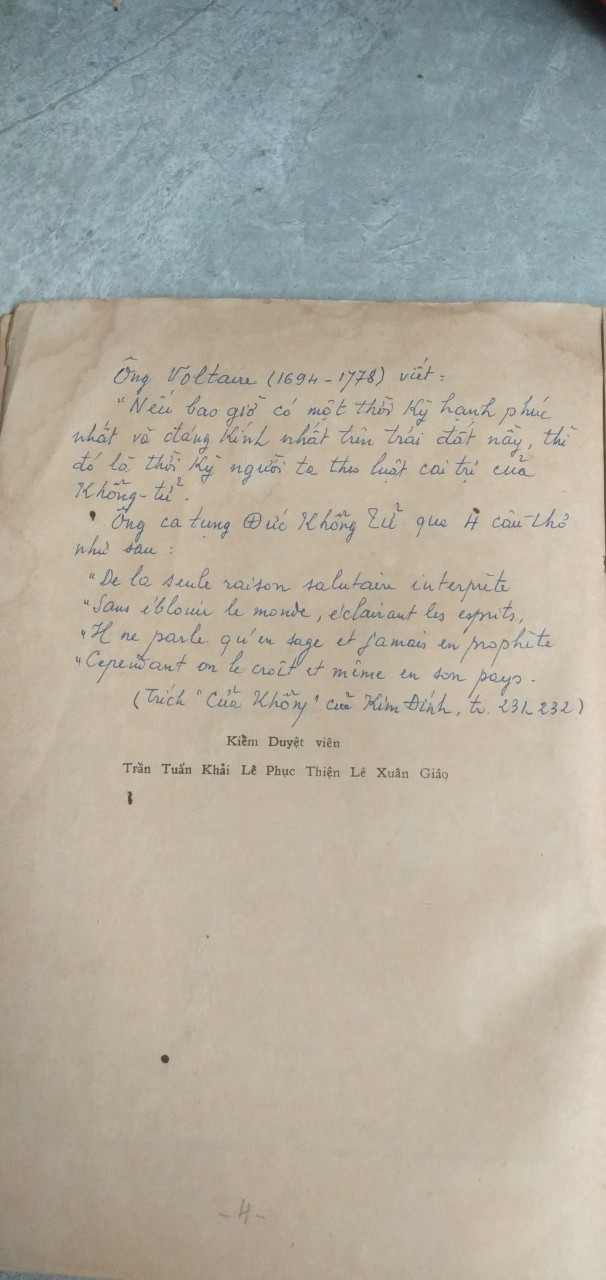 Ông Voltaire (1694-1778) viết:
"Nếu bao giờ có một thời kỳ hạnh phúc
nhất và đáng kính nhất trên trái đất nầy, thì
đó là thời kỳ người ta theo luật cai trị của
Khổng-tử".
Ông ca tụng Đức Khổng Tử qua 4 câu thơ
như sau:
"De la seule raison salutaire interprète
"Sans éblouir le monde, éclairant les esprits,
"Il ne parle qu'en sage et jamais en prophète
"Cependant on le croît et même en son pays.
(Trích "Cửa Khổng" của Kim Định, tr. 231, 232)
Kiểm Duyệt viên
Trần Tuấn Khải Lê Phục Thiện Lê Xuân Giáo
-4-